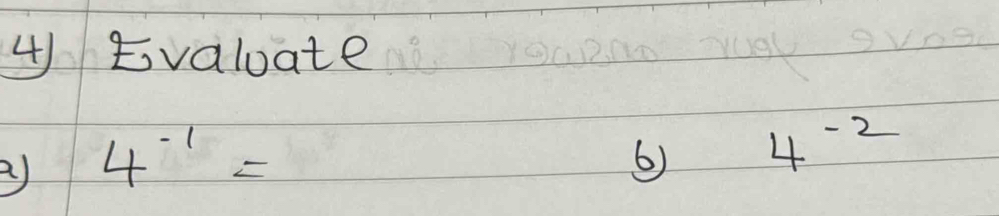 4) Evaluate
a) 4⁻¹ = b) 4⁻²